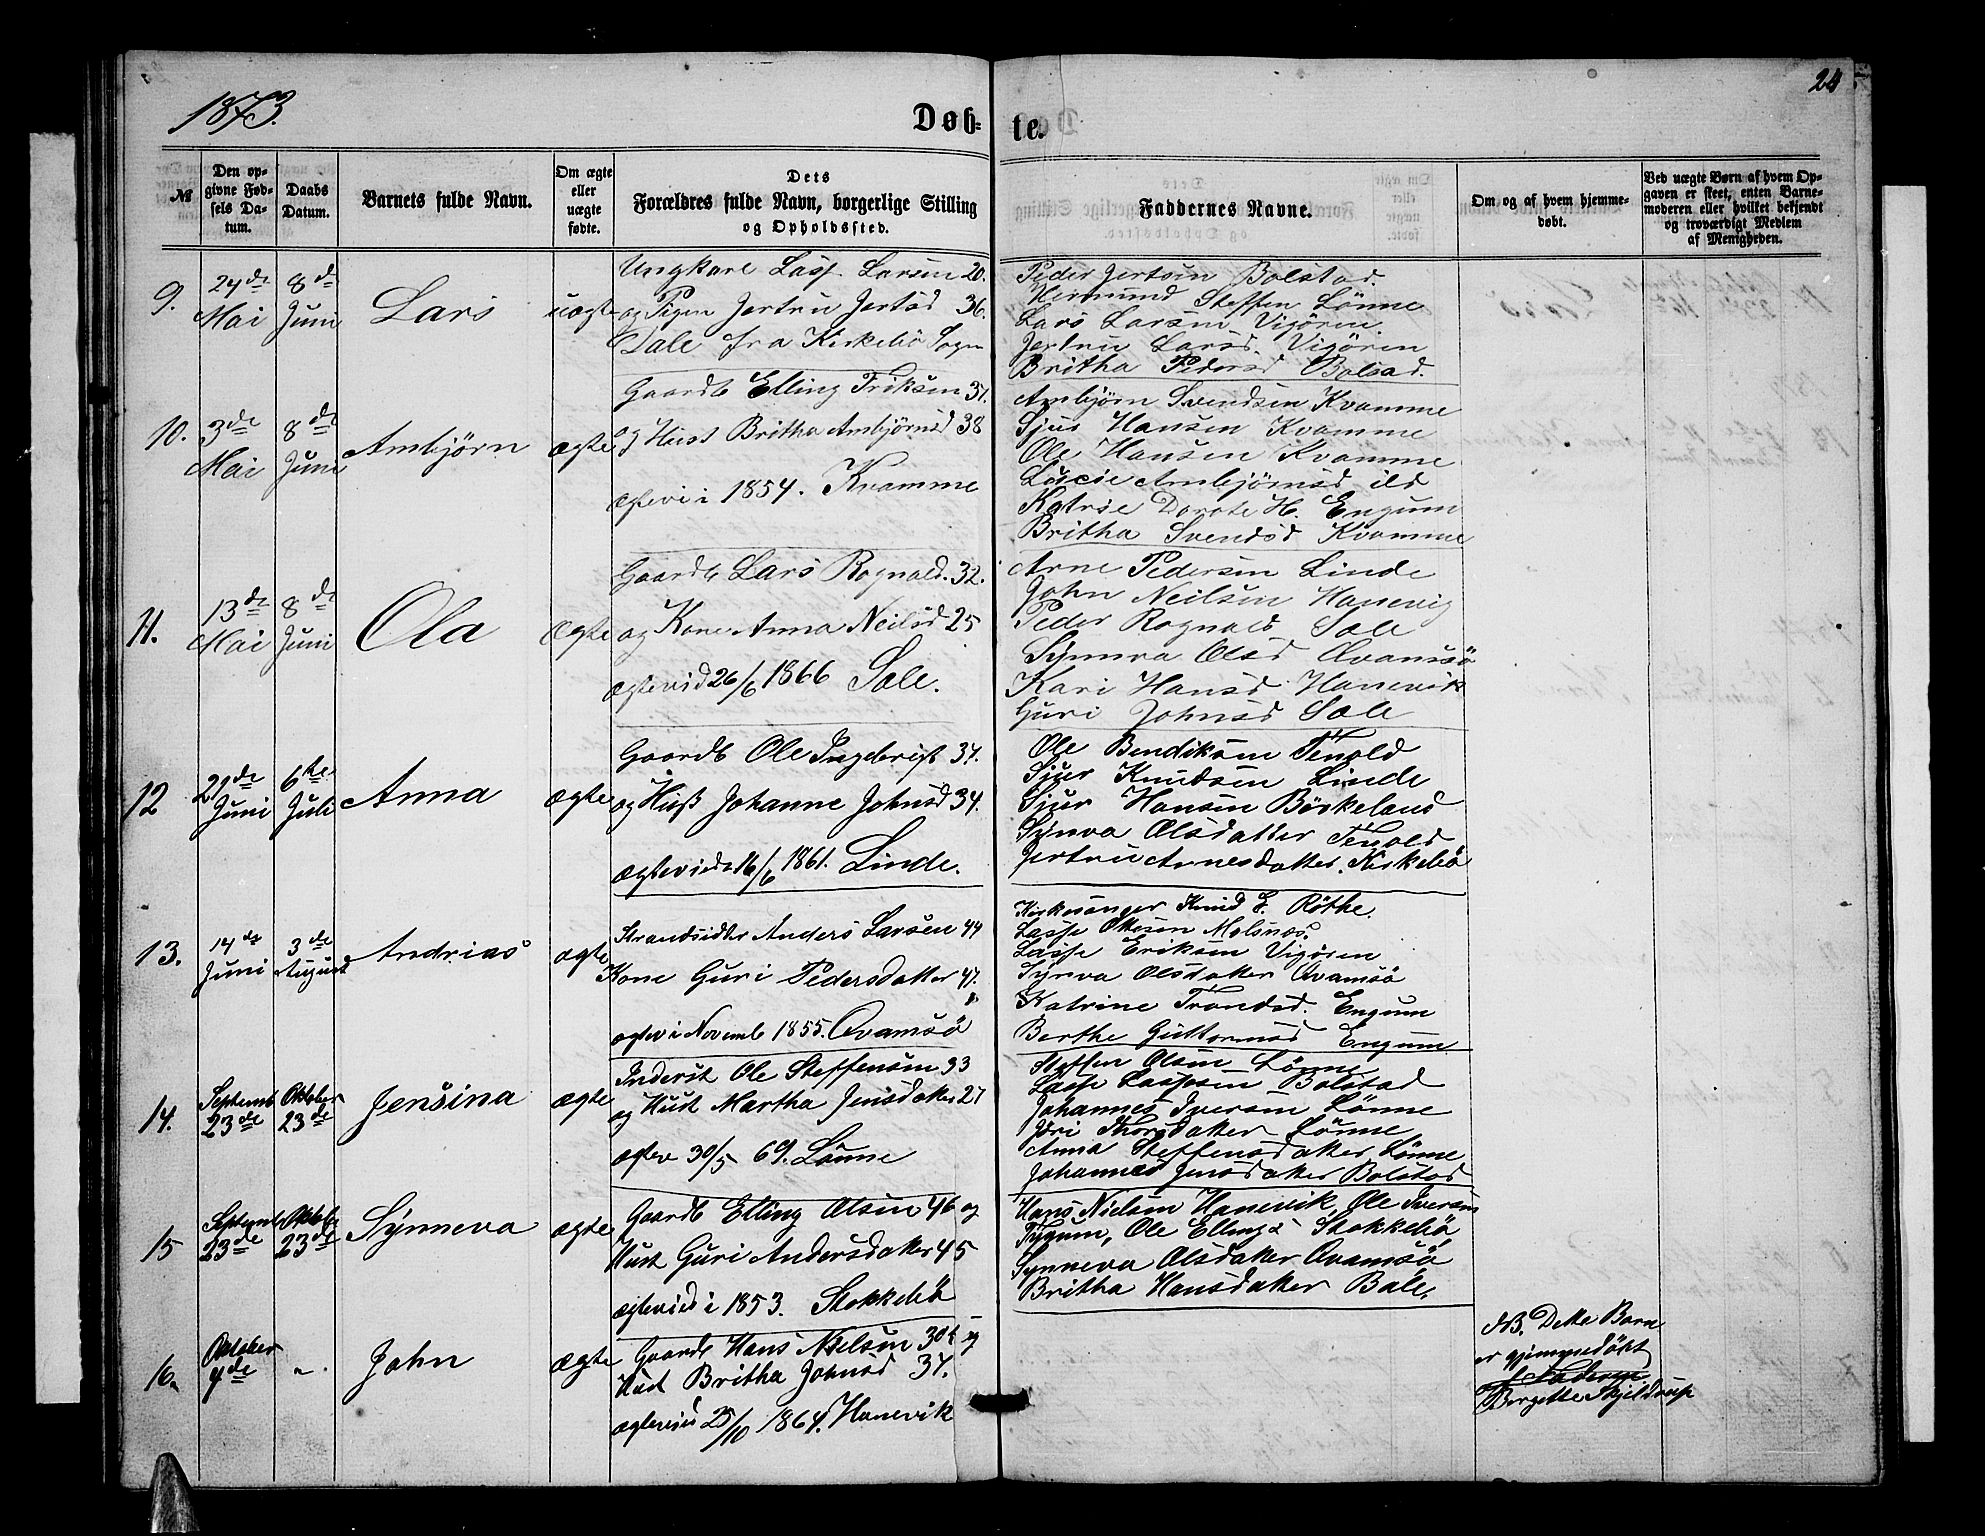 1873.
24
Døb-
te.
№
Den op-
givne Fød-
sels Da-
tum.
Daabs
Datum.
Barnets fulde Navn.
Om ægte
eller
uægte
fødte.
Dets
Forældres fulde Navn, borgerlige Stilling
og Opholdssted.
Faddernes Navne.
Om og af hvem hjemme-
døbt.
Ved uægte Børn af hvem Op-
gaven er skeet, enten Barne-
moderen eller hvilket bekjendt
og troværdigt Medlem
af Menigheden.
9.
24de
Mai
8de
Juni
Lars
uægte
Ungkarl Lasse Larsen 20.
og Pigen Jertru Jertsd 36.
Dale fra Kirkebö Sogn
Peder Jertsen Bolstad.
Hermund Steffen Lönne
Lars Larsen Vigören.
Jertru Larsd. Vigören
Britha Pedersd Bolsad.
10.
3de
Mai
8de
Juni
Ambjörn
ægte
Gaardb Elling Eriksen 37.
og Hust Britha Ambjörnsd 38
ægtevi i 1854. Kvamme
Ambjörn Svendsen Kvamme
Sjur Hansen Kvamme
Ole Hansen Kvamme
Lucie Ambjörnsd ild
Katrie Dorote H. Engum
Britha Svendsd Kvamme
11.
13de
Mai
8de
Juni
Ola
Ægte
Gaardb Lars Rognald. 32.
og Kone Anna Neilsd 25
ægtevid 26/6 1866 Sæle.
Arne Pedersen Linde
John Neilsen Hanevig
Peder Rognald Sæle
Synnva Olsd Qvamsö
Kari Hansd Hanevik
Guri Johnsd Sæle
12
21de
Juni
6te
Juli
Anna
ægte
Gaardb Ole Ingebrigt 37.
og Huss Johanne Johnsd 34.
ægteviede 16/6 1861. Linde.
Ole Bendiksen Tenold
Sjur Knudsen Linde
Sjur Hansen Böskeland
Synva Olsdatter Tenold
Jertru Arnesdatter. Kirkebö
13.
14de
Juni
3de
August
Andrias
ægte
Strandsidter Anders Larsen 44
Kone Guri Pedersdatter 47.
ægtev i Novemb 1855. Qvamsö
Kirkesanger Knud E. Röthe.
Lasse Ottesen Molsnæs.
Lasse Eriksen Vigören
Synva Olsdatter Qvamsö
Katrine Trondsd. Engum
Berthe Guttormsd Engum
14.
Septemb
23de
Oktober
23de
Jensina
ægte
Inderst Ole Steffensen 33
og Hust Martha Jensdatter 27
ægtev 30/5 69. Lönne
Steffen Olsen Lönne
Lasse Lassesen Bolstad
Johannes Iversen Lönne
Jöri Thorsdatter Lönne
Anna Steffensdatter Lönne
Johannes Jensdatter Bolstad
15
Septemb
23de
Oktob
23de
Synneva
ægte
Gaardb Elling Olsen 46 og
Hust Guri Andersdatter 45
ægteviet i 1853. Stokkebö
Hans Nielsen Hanevik, Ole Iversen
Tygum, Ole Ellings Stokkebö
Synneva Olsdatter Qvamsö
Britha Hansdatter Bale.
16.
Oktober
4de
"
John
ægte
Gaardb Hans Nielsen 30t og
Hust Britha Johnsd 37.
ægteviet 25/10 1864. Hanevik
NB. Dette Barn
er hjemmedöbt
Birgitte Skjeldrup